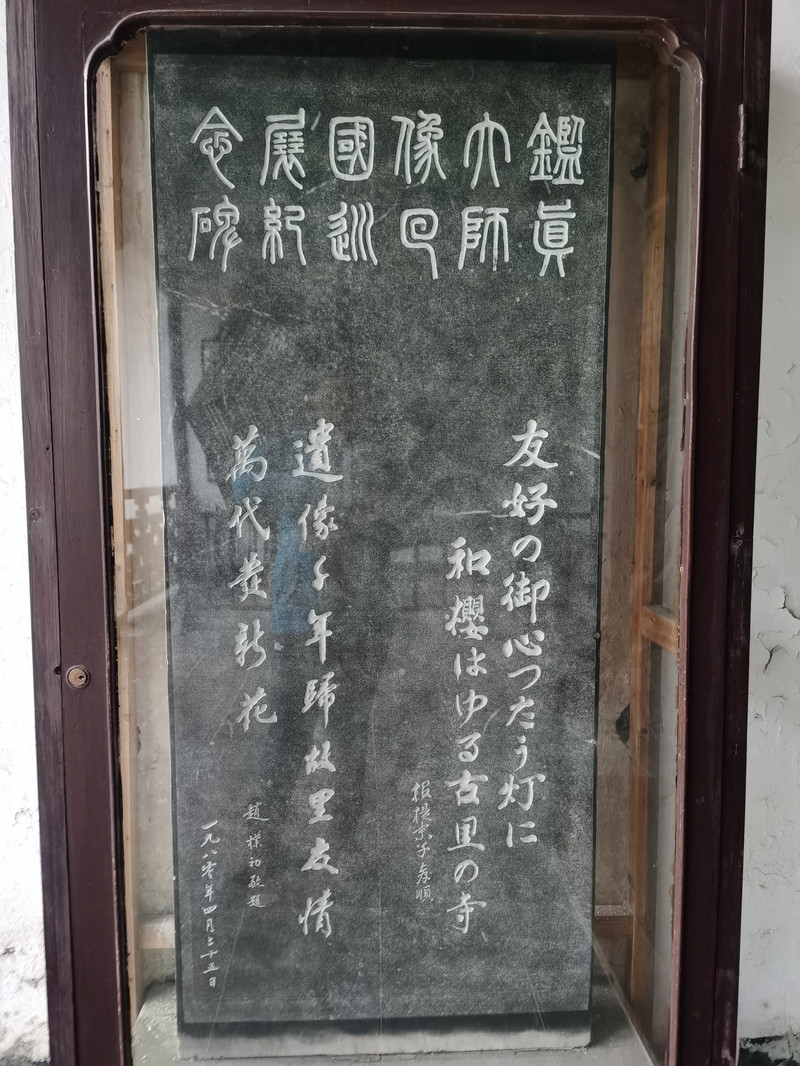 鑑眞
大師
像回
國巡
展紀
念碑
友好の御心つたう灯に
和櫻はゆる古里の寺
招提末子孝順
遺像千年歸故里友情
萬代發新花
趙樸初敬題
一九八零年四月二十五日